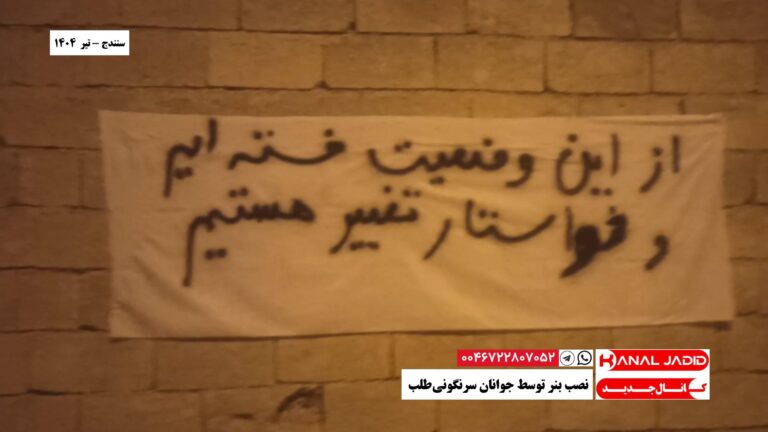 سنندج – تیر ۱۴۰۴
از این وضعیت خسته ایم
و خواستار تغییر هستیم
۰۰۴۶۷۲۲۸۰۷۰۵۲
KANAL JADID
نصب بنر توسط جوانان سرنگونی‌طلب
کانال جدید